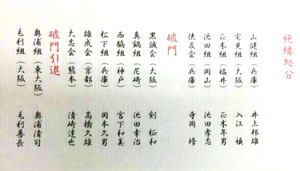 絶縁処分
山健組(兵庫) 井上邦雄
宅見組(大阪) 入江禎
正木組(福井) 正木年男
池田組(岡山) 池田孝志
侠友会(兵庫) 寺岡修
破門
黒誠会(大阪) 剣柾和
真鍋組(尼崎) 池田幸治
西脇組(神戸) 宮下和美
松下組(兵庫) 岡本久男
雄成会(京都) 高橋久雄
大志会(熊本) 清崎達也
破門引退
奥浦組(東大阪) 奥浦清司
毛利組(大阪) 毛利善長